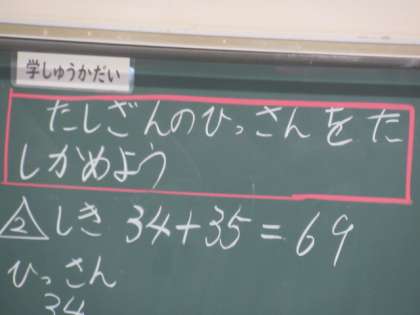 学しゅうかだい
たしざんのひっさんをた
しかめよう
2 しき 34+35=69
ひっさん
34